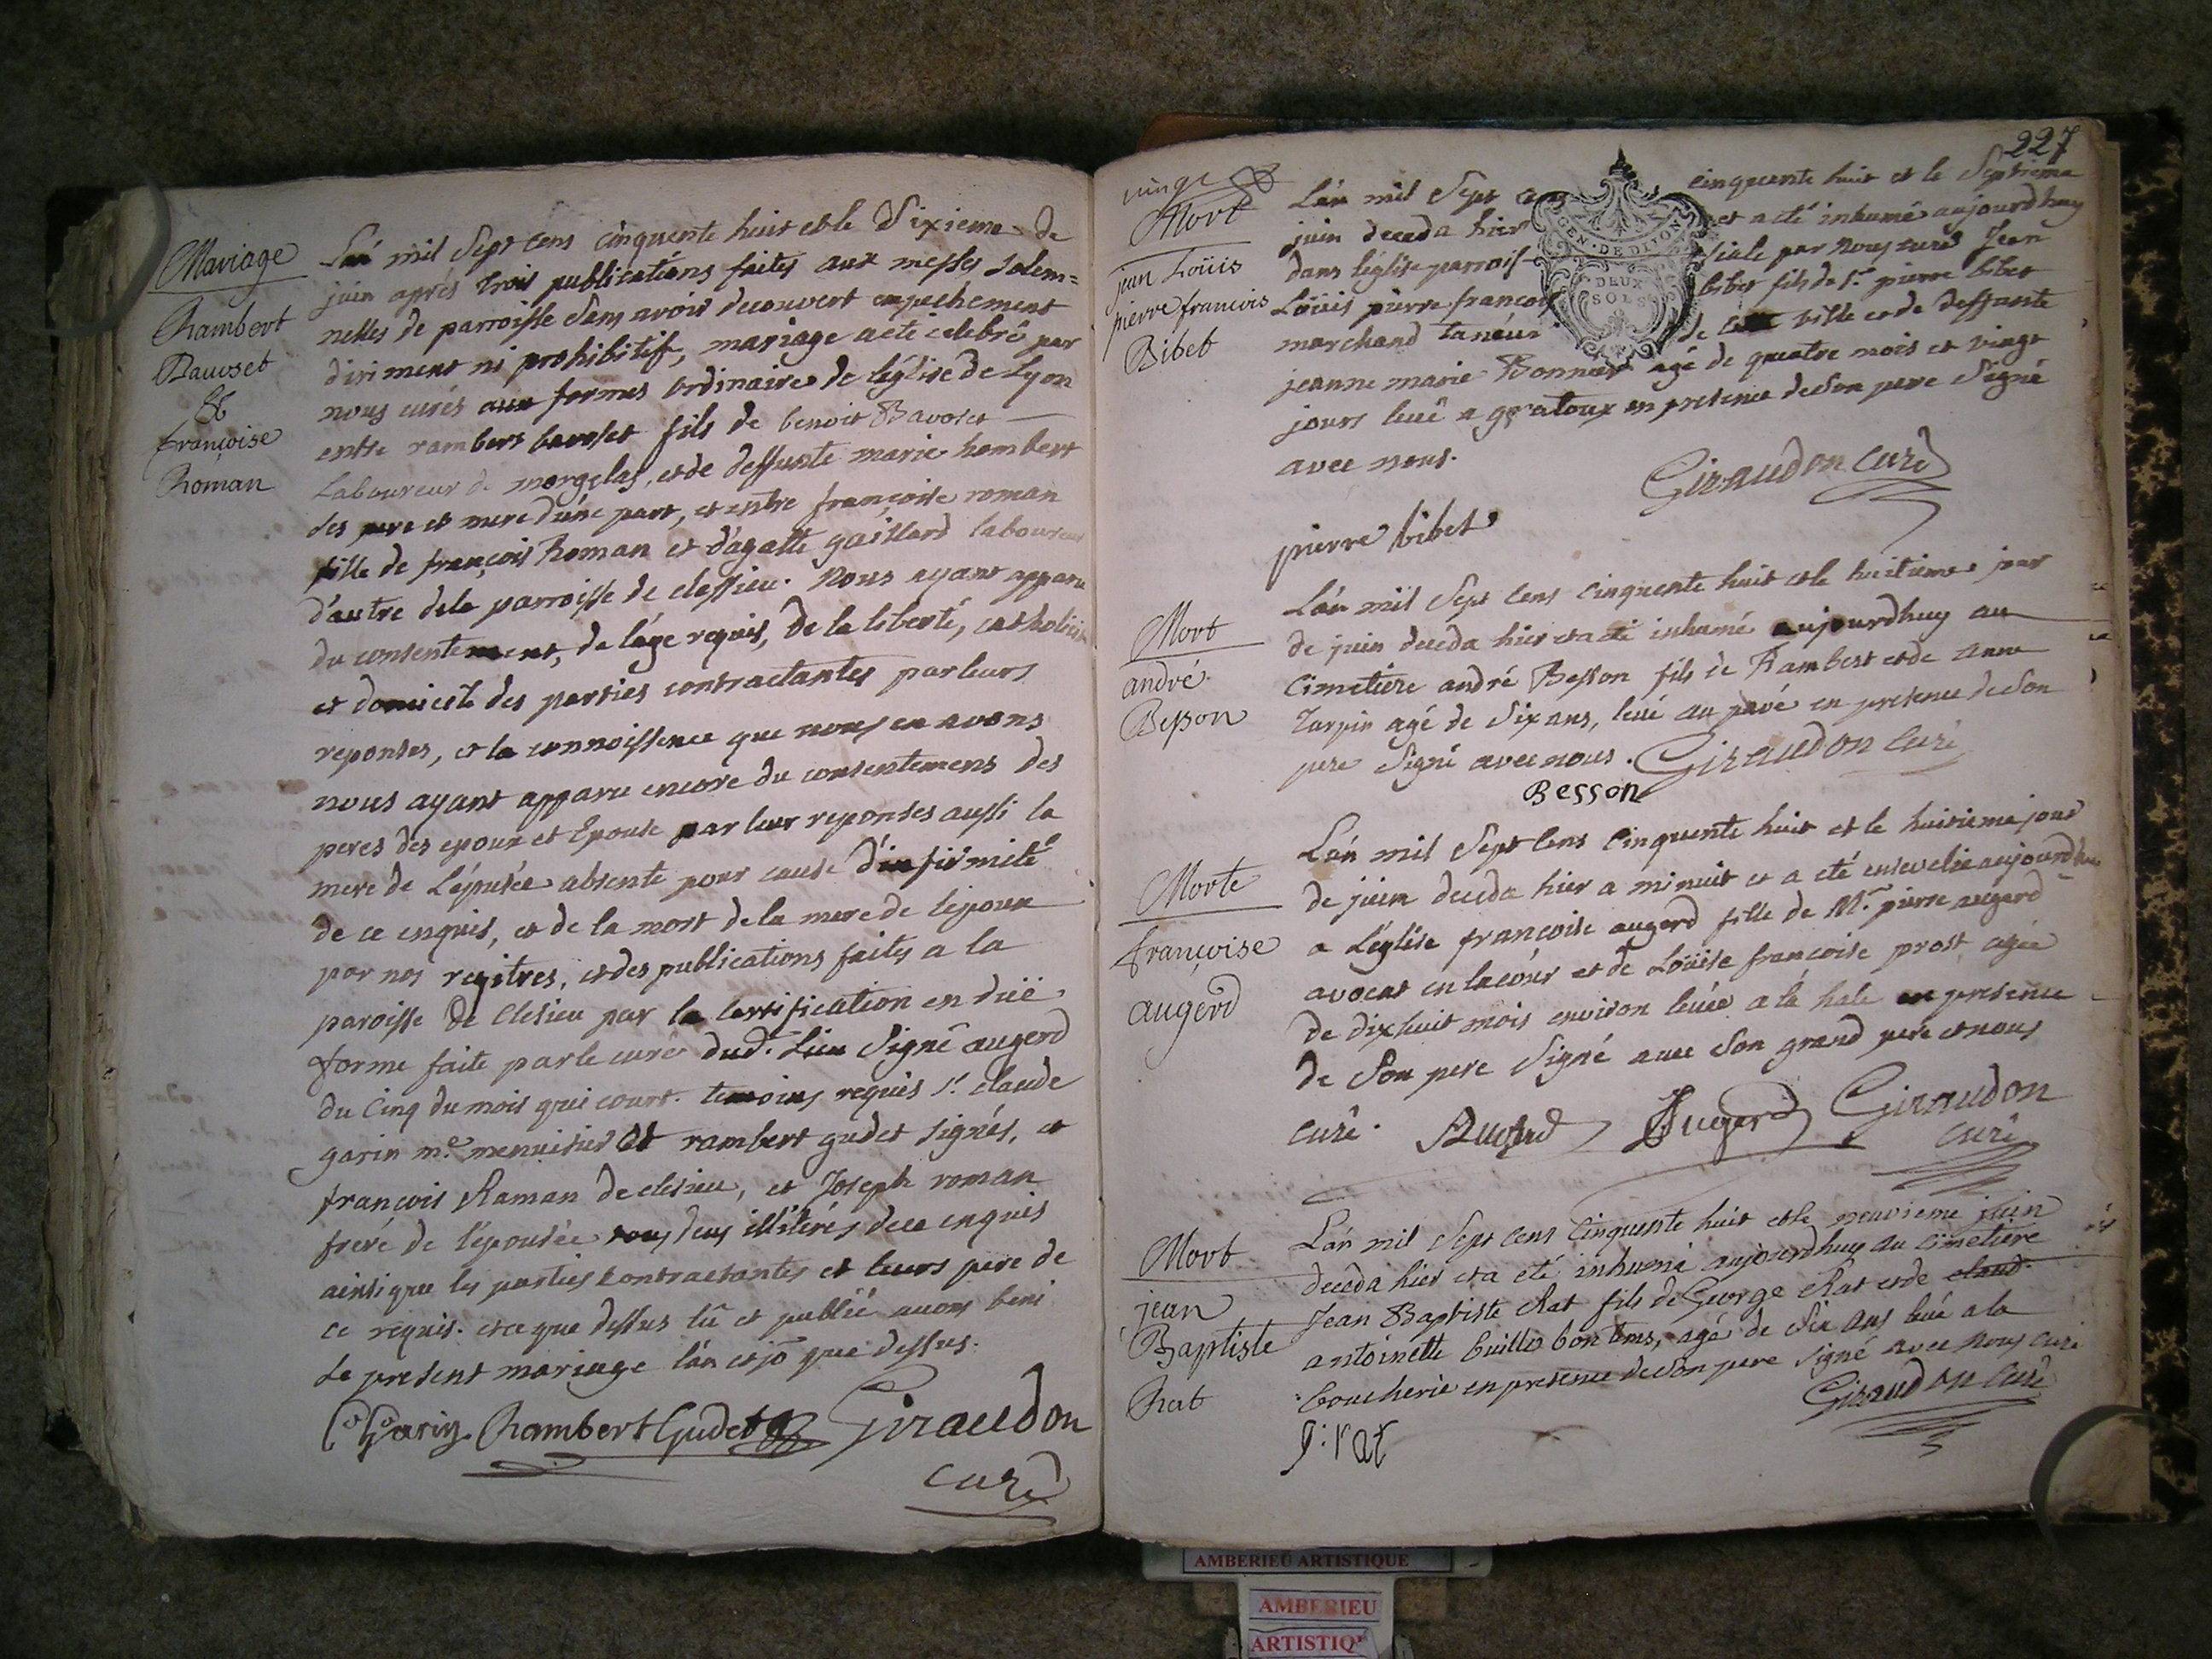 Mariage
Rambert
Bavoset
&
françoise
Roman
L'an mil Sept cens cinquente huit et le Sixieme de
juin aprés trois publications faites aux messes solem=
nelles de parroisse sans avoir decouvert empechement
diriment ni prohibitif, mariage a eté celebré par
nous curés aux formes ordinaires de l'église de Lyon
entre rambert bavoset fils de benoit Bavoset
Laboureur de morgelas, et de deffunte marie hombert
ses pere et mere d'une part, et entre françoise roman
fille de françois Roman et d'agatte gaillard laboureur
d'autre de la parroisse de clessieu. Nous ayant apparu
du consentement, de l'age requis, de la liberté, catholicité
et domicile des parties contractantes par leurs
reponses, et la connoissence que nous en avons
nous ayant apparu encore du consentemens des
peres des epoux et Epouse par leur reponses aussi la
mere de L'épousée absente pour cause d'infirmité
de ce enquis, et de la mort de la mere de l'epoux
par nos regitres, et des publications faites a la
paroisse de Clesieu par la certification en duë
forme faite par le curé dud. Lieu Signé augerd
du cinq du mois qui court. temoins requis Sr. claude
garin me. menuisier et rambert gudet signés, et
françois Raman de clesieu, et Joseph roman
freré de l'épousée tous deux illitérés de ce enquis
ainsi que les parties contractantes et leurs pere de
ce requis. et ce que dessus lû et publié avons beni
le present mariage l'an et jo que dessus.
Co Garin Rambert Gudet Giraudon
curé
227
vingt
Mort
jean Loüis
pierre francois
Bibet
GEN · DE DIJON
DEUX
SOLS
L'an mil Sept cens cinquente huit et le Septieme
juin deceda hier et a eté inhumé aujourdhuy
dans l'église parroissiale par nous curé Jean
Loüis pierre françois bibet fils de Sr. pierre bibet
marchand taneur de cette ville et de deffunte
jeanne marie Bonnier agé de quatre mois et vingt
jours levé a gratoux en presence de son pere Signé
avec nous.
Giraudon curé
pierre bibet
Mort
andré
Besson
L'an mil Sept cens cinquente huit et le huitieme jour
de juin deceda hier et a eté inhumé aujourdhuy au
Cimetiére andré Besson fils de Rambert et de anne
Tarpin agé de Six ans, levé au pavé en presence de Son
pere Signé avec nous. Giraudon Curé
Besson
Morte
françoise
augerd
L'an mil Sept cens cinquente huit et le huitieme jour
de juin deceda hier a minuit et a eté ensevelie aujourdhuy
a L'église françoise augerd fille de Mr. pierre augerd
avocat en la cour et de Loüise françoise prost agée
de dixhuit mois environ levée a la hale en presence
de Son pere Signé avec Son grand pere et nous
curé. Augerd Augerd Giraudon
curé
Mort
jean
Baptiste
Rat
L'an mil Sept cens Cinquente huit et le neuvieme juin
deceda hier et a eté inhumé aujourdhuy au Cimetiére
Jean Baptiste Rat fils de George Rat et de claud.
antoinette buillet bontems, agé de Six ans levé a la
boucherie en presence de Son pere Signé avec nous curé
Giraudon Curé
g: rat
AMBERIEU ARTISTIQUE
AMBERIEU
ARTISTIQ